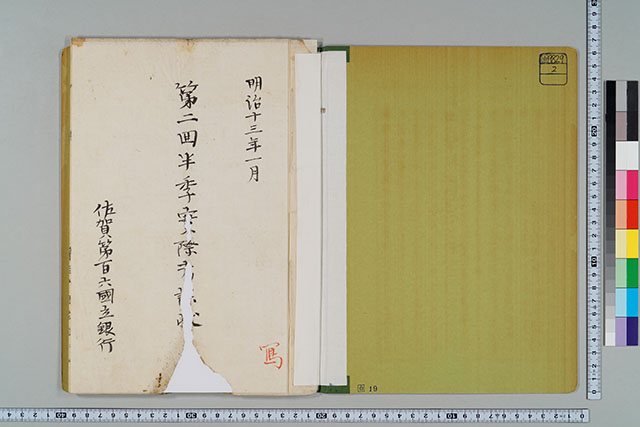 明治十三年一月
第二回半季実際考課状
佐賀第百六國立銀行
写
2
19